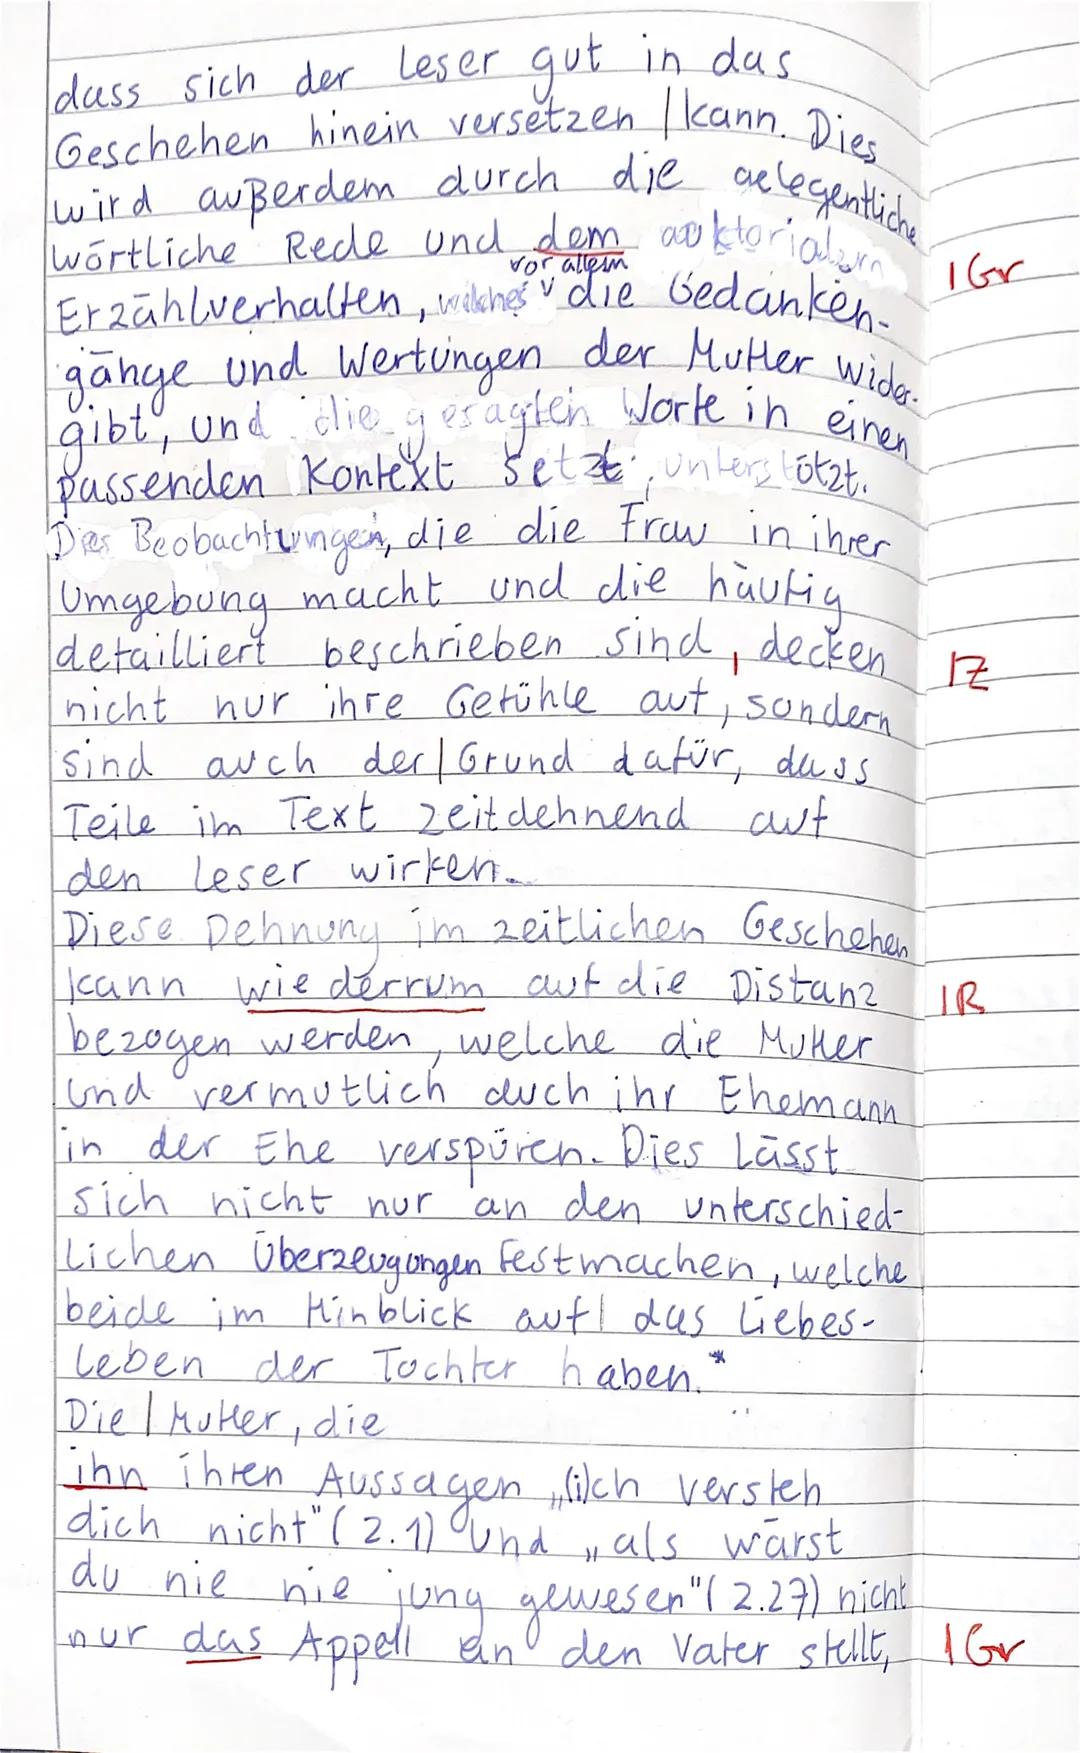 dass sich der Leser gut in das
Geschehen hinein versetzen | kann. Dies
wird außerdem durch die gelegentliche
wörtliche Rede und dem auktorialern
1Gr
vor allem
Erzählverhalten, welches v die Gedanken-
gänge und Wertungen der Mutter wider-
gibt, und die gesagten Worte in einen
passenden Kontext setzt, unterstützt.
Die Beobachtungen, die die Frau in ihrer
Umgebung macht und die häufig
detailliert beschrieben sind, decken
1Z
nicht nur ihre Gefühle auf, sondern
sind auch der | Grund dafür, dass
Teile im Text zeitdehnend auf
den Leser wirken.
Diese Dehnung im zeitlichen Geschehen
kann wiederrum auf die Distanz
1R
bezogen werden, welche die Mutter
und vermutlich auch ihr Ehemann
in der Ehe verspüren. Dies lässt
sich nicht nur an den unterschied-
lichen Überzeugungen festmachen, welche
beide im Hinblick auf | das Liebes-
leben der Tochter haben.*
Die | Mutter, die
ihn ihren Aussagen „(i)ch versteh
dich nicht" (Z.1) und „als wärst
du nie nie jung gewesen" (Z.27) nicht
nur das Appell an den Vater stellt,
1Gr